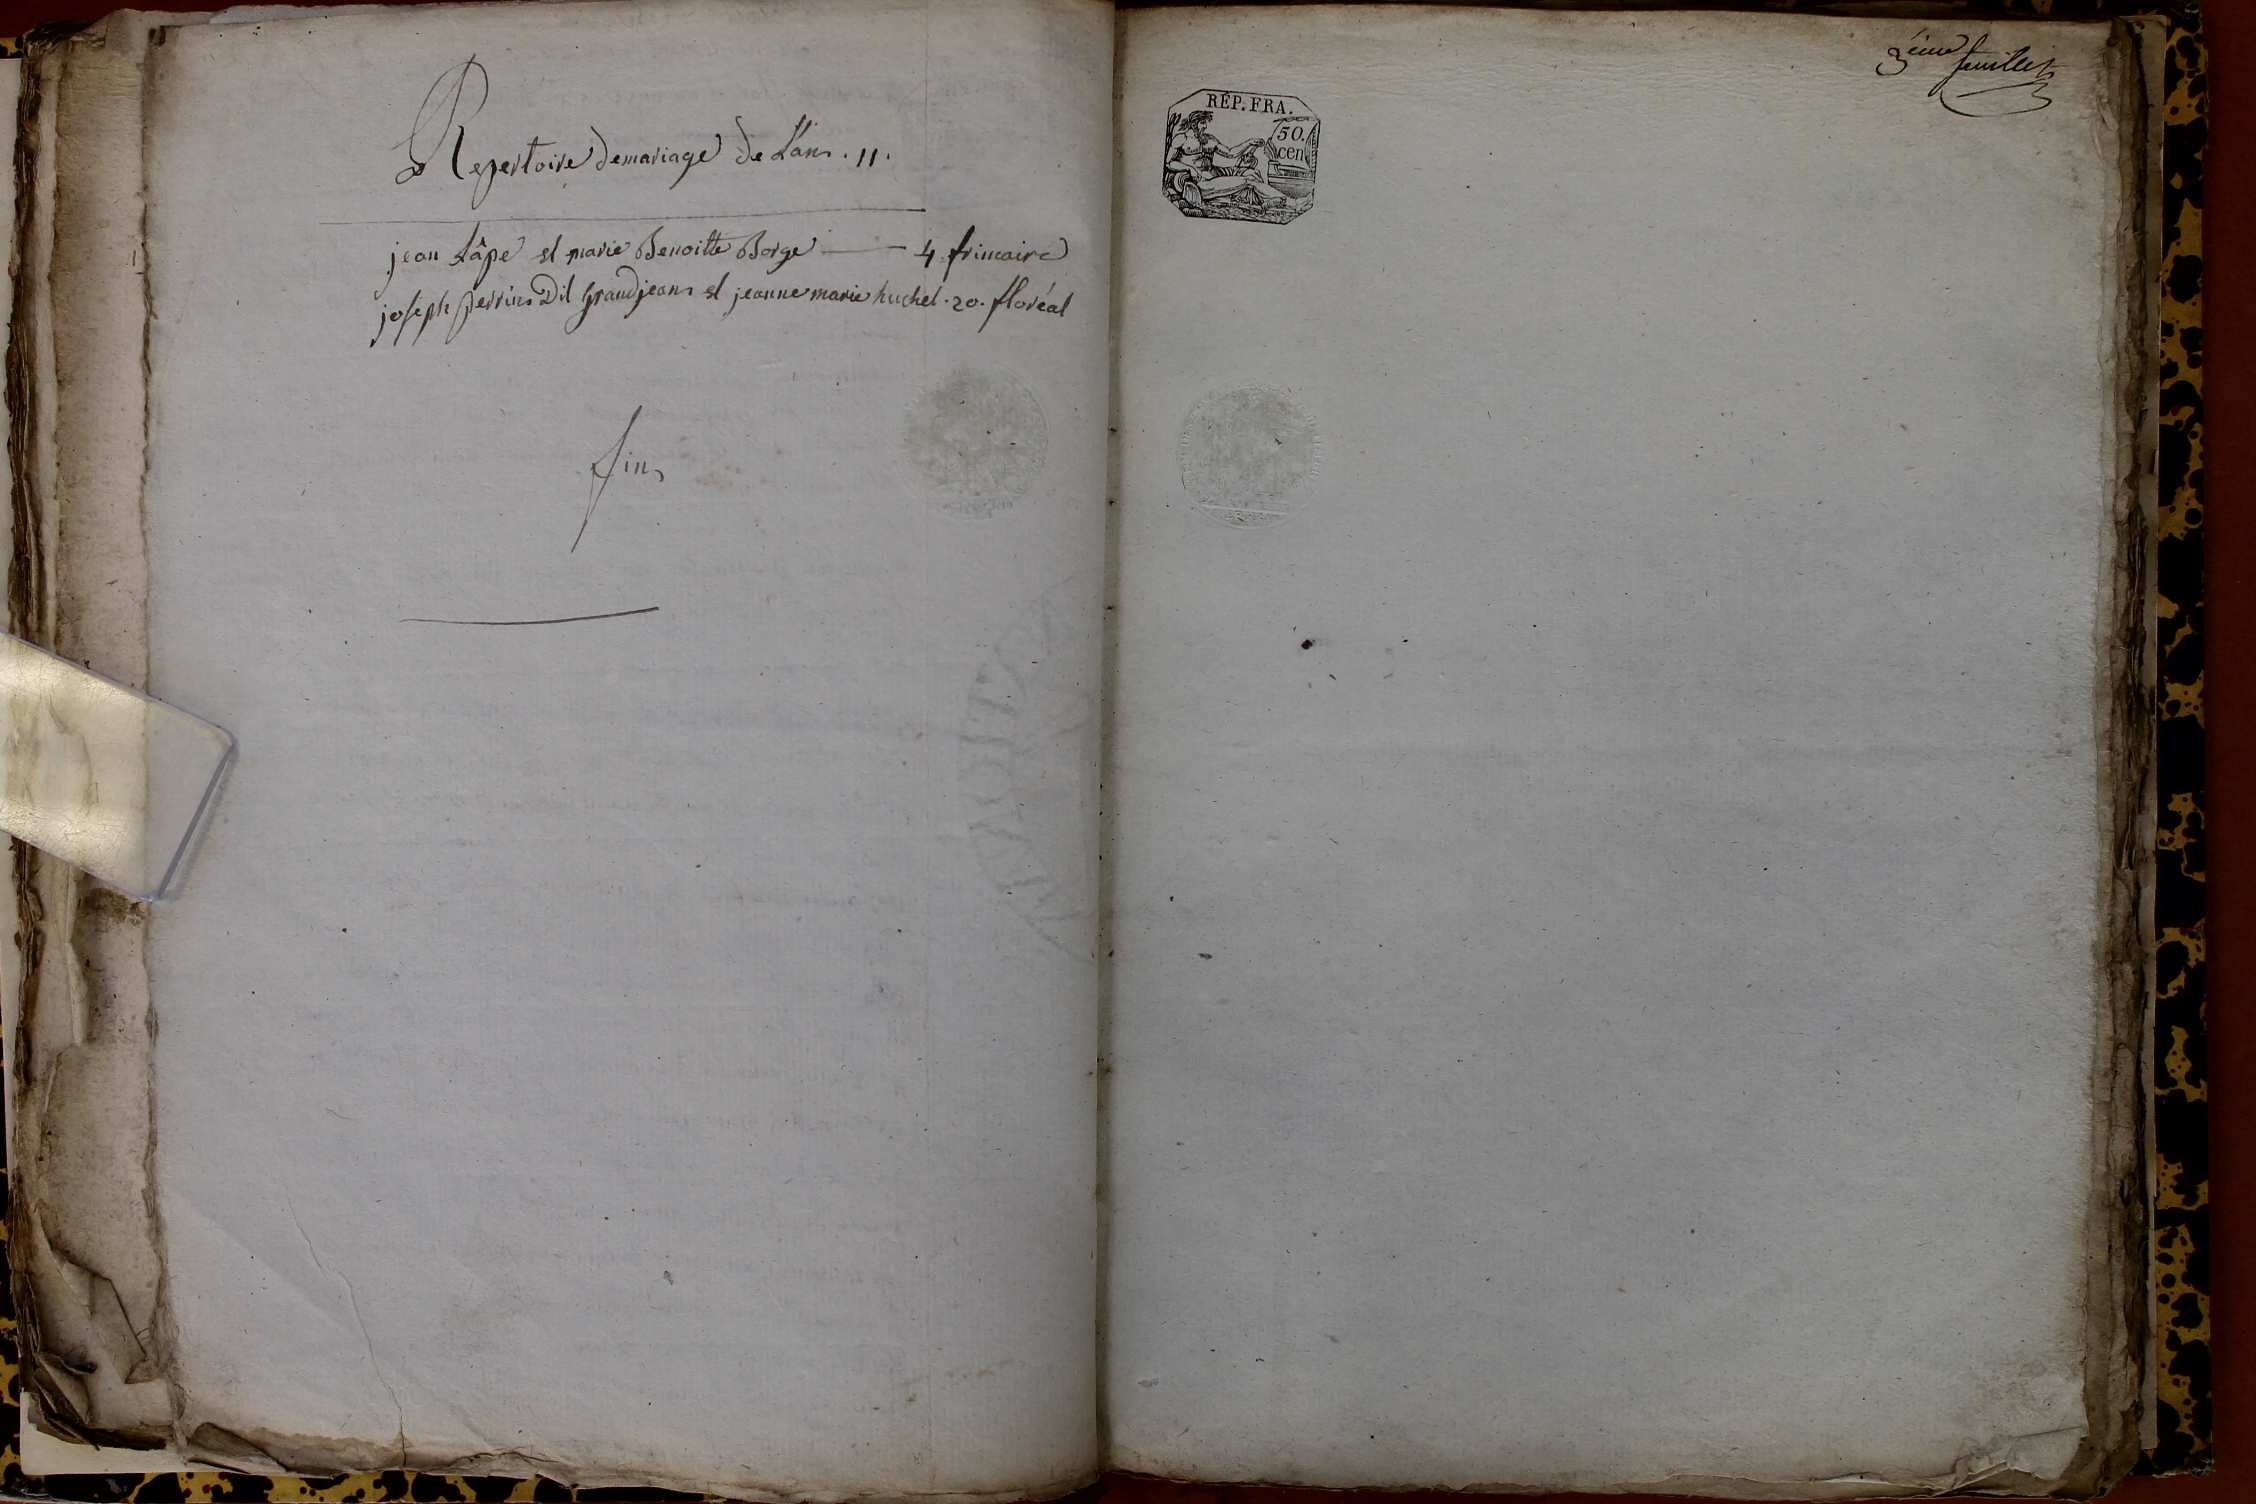 Repertoire de mariage de L'an . 11 .
jean Lâpe et marie Benoitte Borge — 4 frimaire
joseph perrin Dit grandjean et jeanne marie huchet . 20 . floréal
fin
3eme feuillet
RÉP. FRA.
50.
cen